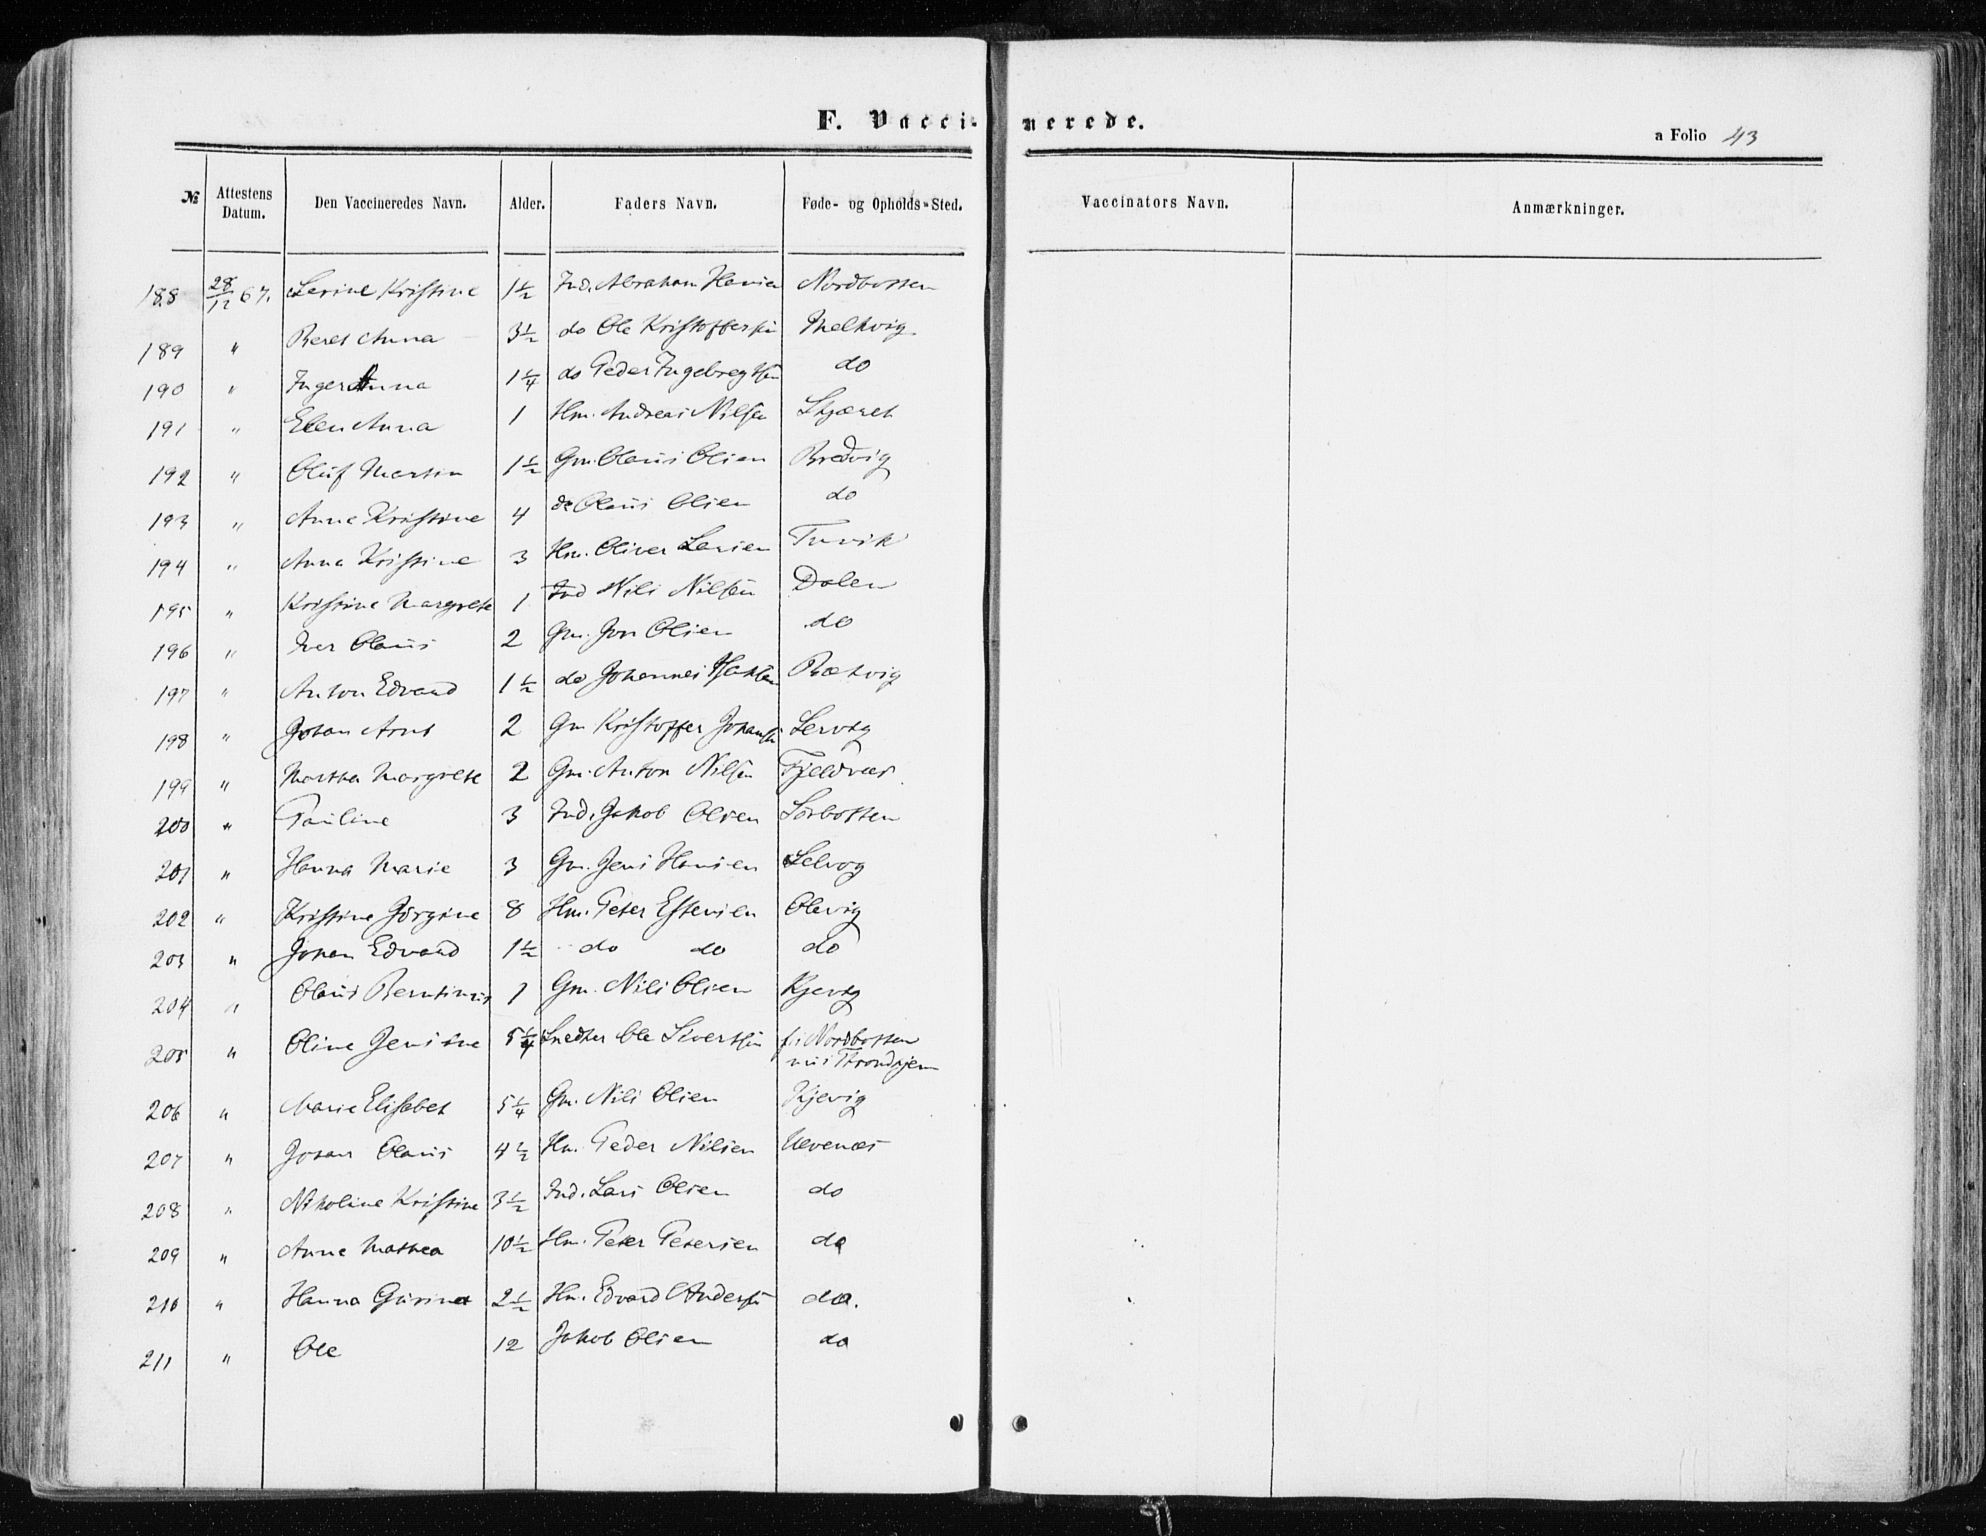 F. Vaccinerede.
a Folio 43
№ Attestens Datum. Den Vaccineredes Navn. Alder. Faders Navn. Føde- og Opholds-Sted. Vaccinators Navn. Anmærkninger.
188 28/12 67. Serine Kristine 1½ Ind. Abraham Hansen Nordbotten
189 " Beret Anna 3½ do Ole Kristoffersen Melkvig
190 " Inger Anna 1¼ do Peder Ingebregtsen do
191 " Elen Anna 1 Hm. Andreas Nilsen Skjæret
192 " Oluf Martin 1½ Gm. Olaus Olsen Bredvig
193 " Anne Kristine 4 do Olaus Olsen do
194 " Anna Kristine 3 Hm. Oliver Larsen Tuvik
195 " Kristine Margrete 1 Ind Nils Nilsen Dalen
196 " Iver Olaus 2 Gm. Jon Olsen do
197 " Anton Edvard 1½ do Johannes Bætvig
198 " Johan Arnt 2 Gm Kristoffer Johansen Servig
199 " Martha Margrete 2 Gm. Anton Nilsen Fjeldvær
200 " Pauline 3 Ind. Jakob Olsen Sørbotten
201 " Hanna Marie 3 Gm. Jens Hansen Selvog
202 " Kristine Jørgine 8 Hm. Peter Estensen Olevig
203 " Johan Edvard 1½ do do do
204 " Olaus Berntinus 1 Gm. Nils Olsen Kjevig
205 " Oline Jensine 5¼ Snedker Ole Sivertsen f. i Nordbotten
nu i Throndhjem
206 " Marie Elisabet 5¼ Gm. Nils Olsen Kjevig
207 " Johan Olaus 4½ Hm. Peder Nilsen Ulvenæs
208 " Nikoline Kristine 3½ Ind. Lars Olsen do
209 " Anne Mathea 10½ Hm. Peter Petersen do
210 " Hanna Gurina 2½ Hm. Edvard Andersen do.
211 " Ole 12 Jakob Olsen do